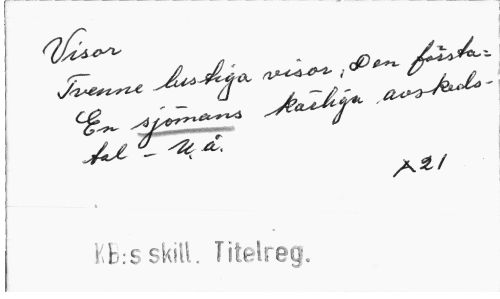 Visor
Tvenne lustiga visor, Den första:
En sjömans kärliga avskeds-
tal - U. å.
A21
KB:s skill. Titelreg.